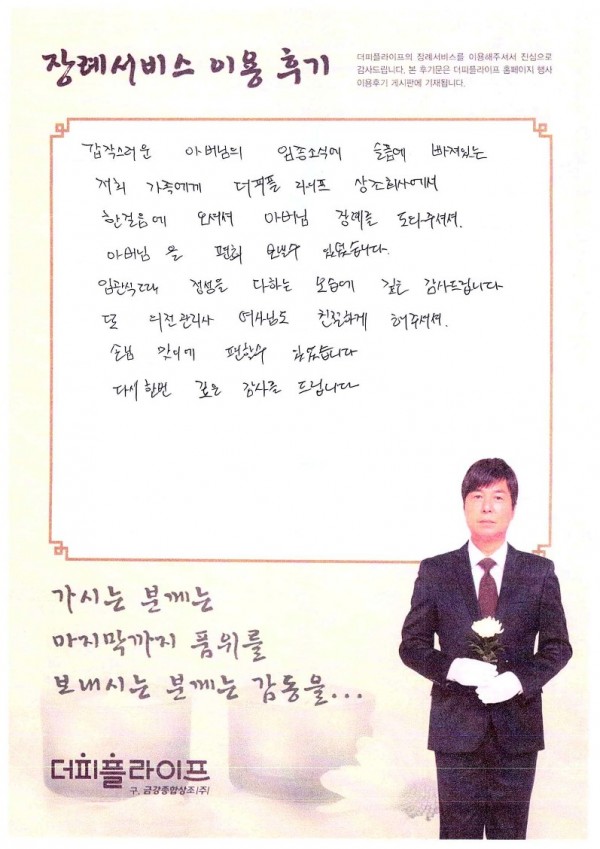 장례서비스 이용 후기
더피플라이프의 장례서비스를 이용해주셔서 진심으로
감사드립니다. 본 후기문은 더피플라이프 홈페이지 행사
이용후기 게시판에 기재됩니다.
갑작스러운 아버님의 임종소식에 슬픔에 빠져있는
저희 가족에게 더피플 라이프 상조회사에서
한걸음에 오셔셔 아버님 장례를 도다주셔셔.
아버님 을 편희 보낼수 있었습니다.
입관식 정성을 다하는 모습에 깊은 감사드립니다
또 관리사 여사님도 친절하게 해주셔셔.
손님 맞이에 편할수 있었습니다
다시한번 깊은 감사를 드립니다
가시는 분께는
마지막까지 품위를
보내시는 분께는 감동을...
더피플라이프
구. 금강종합상조(주)